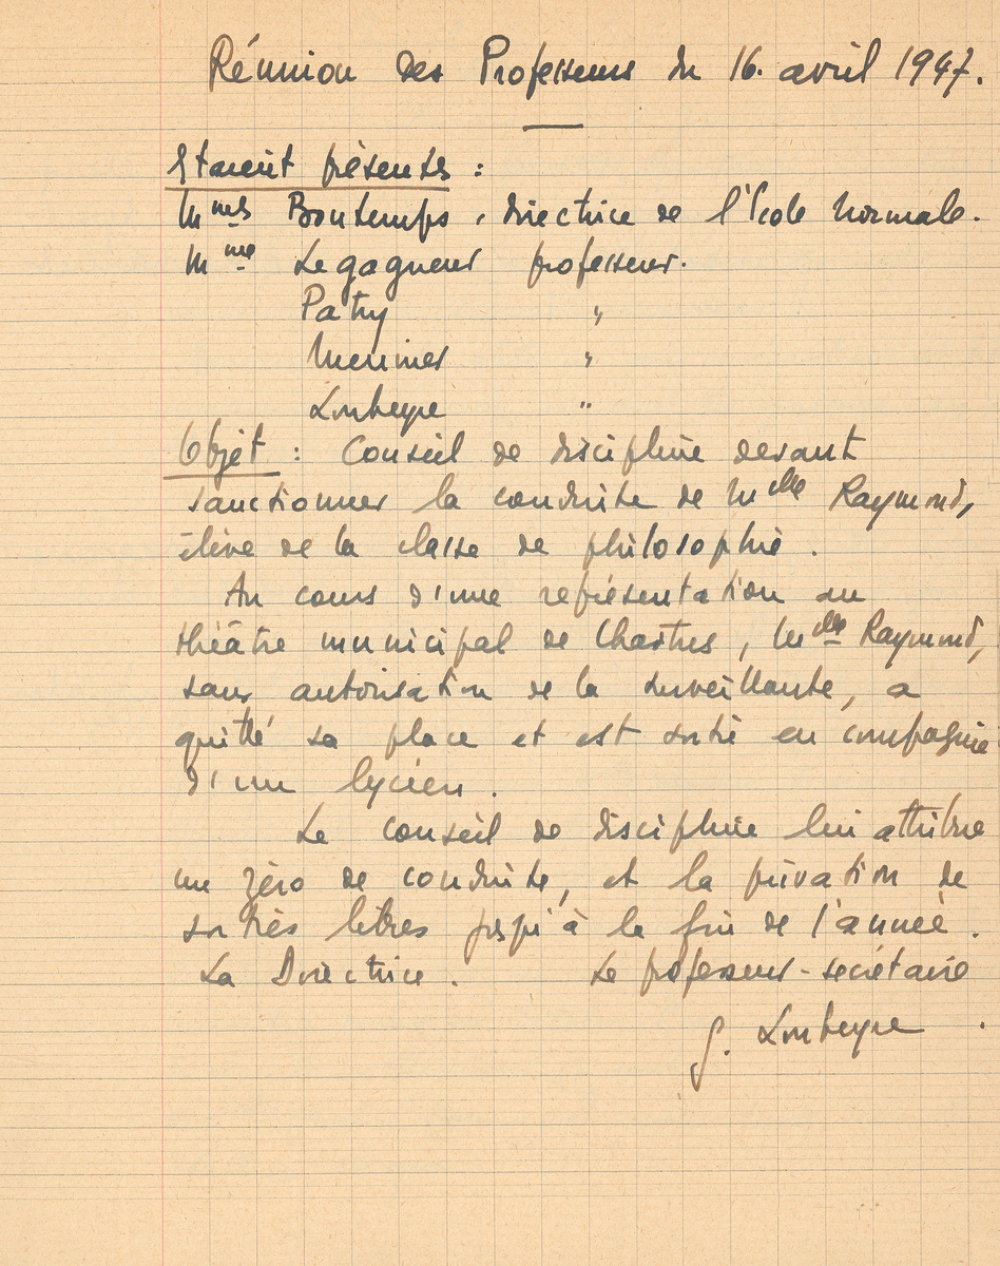 Réunion des Professeurs du 16. avril 1947.
Etaient présentes :
Mmes Bontemps, directrice de l'Ecole Normale.
Mme Legagneur professeur.
Patry "
Meunier "
Loubeyre "
Objet : Conseil de discipline devant
sanctionner la conduite de Melle Raymond,
élève de la classe de philosophie.
Au cours d'une représentation au
théâtre municipal de Chartres, Melle Raymond,
sans autorisation de la surveillante, a
quitté sa place et est sortie en compagnie
d'un lycéen.
Le conseil de discipline lui attribue
un zéro de conduite, et la privation de
sorties libres jusqu'à la fin de l'année.
La Directrice. Le professeur-secrétaire
G. Loubeyre.